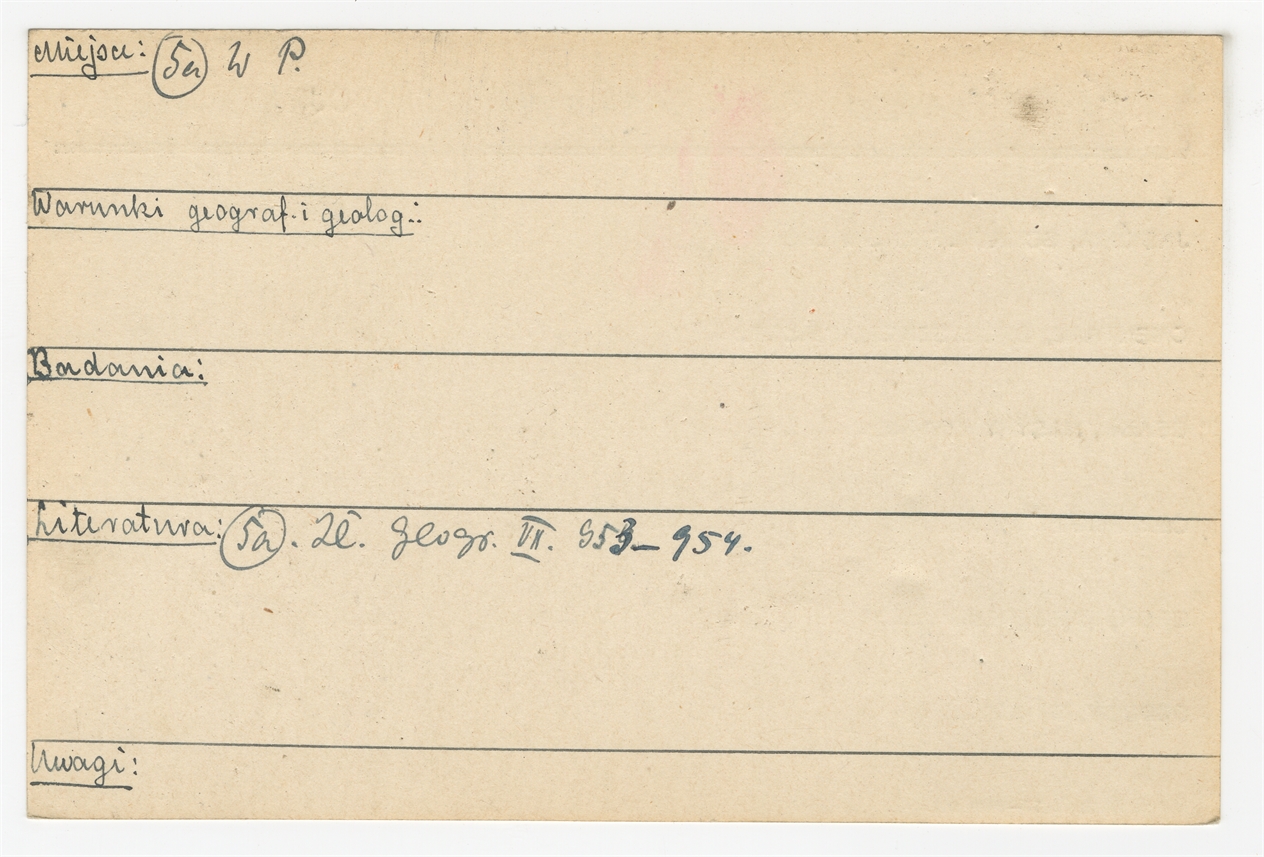 Miejsce: (5a) W P.
Warunki geograf. i geolog.:
Badania:
Literatura: (5a). Sł. Geogr. VII. 953–954.
Uwagi: